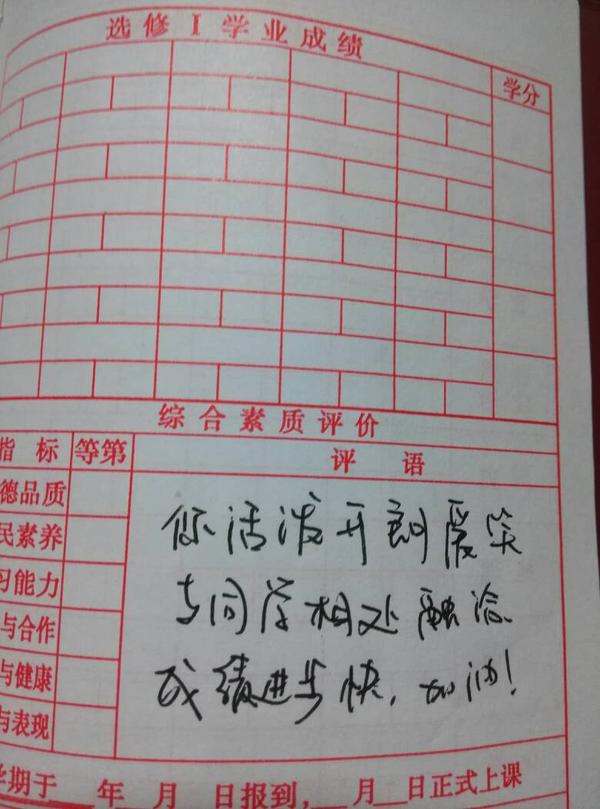 选修Ⅰ学业成绩
学分
综合素质评价
指标 等第 评语
德品质
民素养
习能力
与合作
与健康
与表现
你活泼开朗爱笑
与同学相处融洽
成绩进步快,加油!
学期于 年 月 日报到, 月 日正式上课